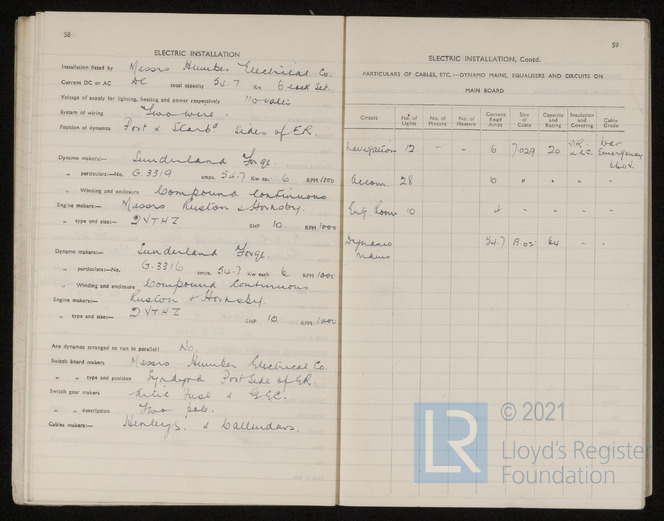 58
ELECTRIC INSTALLATION
Installation fitted by Messrs Humber Electrical Co.
Current DC or AC DC total capacity 54.7 Kw 6 each Set.
Voltage of supply for lighting, heating and power respectively 110 volts
System of wiring Two wire.
Position of dynamos Port & Starbd sides of ER.
Dynamo makers:— Sunderland Forge
„ particulars:—No. G.3319 amps. 54.7 Kw 6 RPM 1000
„ Winding and enclosure Compound Continuous
Engine makers:— Messrs Ruston & Hornsby.
„ type and size:— 2 VTHZ BHP 10. RPM 1000
Dynamo makers:— Sunderland Forge.
„ particulars:—No. G.3316 amps. 54.7 Kw each 6 RPM 1000
„ Winding and enclosure Compound Continuous
Engine makers:— Ruston & Hornsby.
„ type and size:— 2 VTHZ BHP 10 RPM 1000
Are dynamos arranged to run in parallel? No.
Switch board makers Messrs Humber Electrical Co.
„ „ type and position Port Side of ER.
Switch gear makers Fuse & GEC.
„ „ description Two pole.
Cables makers:— Henleys. & Callendars.
59
ELECTRIC INSTALLATION, Contd.
PARTICULARS OF CABLES, ETC.:—DYNAMO MAINS, EQUALISERS AND CIRCUITS ON
MAIN BOARD
Circuits No. of Lights No. of Motors No. of Heaters Current Reqd Amps Size of Cable Capacity and Rating Insulation and Covering Cable Grade
Navigation 12 - - 6 7.029 20 VIR. & L.C.
Emergency
Accom. 28 10 " " - -
Eng Room 10 - - - -
Dynamo Mains 54.7 64 - -
LR © 2021
Lloyd's Register
Foundation